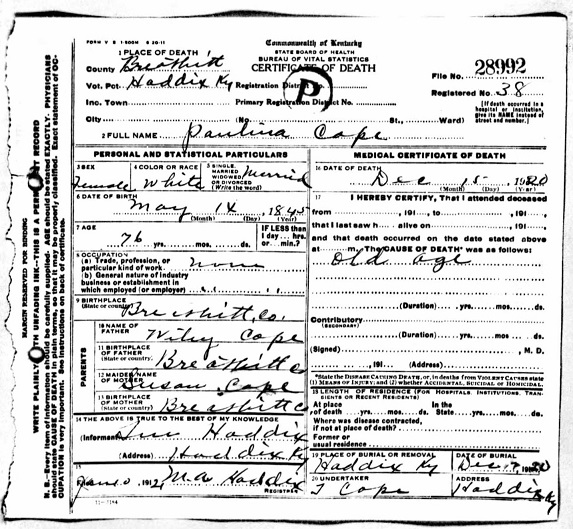 FORM V S 1-500M 8 20-11
Commonwealth of Kentucky
STATE BOARD OF HEALTH
BUREAU OF VITAL STATISTICS
CERTIFICATE OF DEATH
1 PLACE OF DEATH
County Breathitt
Vot. Pct. Haddix Ky Registration District
Inc. Town Primary Registration District No.
City (No. St., Ward)
P
File No. 28992
Registered No. 38
[If death occurred in a hospital or institution, give its NAME instead of street and number.]
2 FULL NAME Paulina Cope
PERSONAL AND STATISTICAL PARTICULARS
3 SEX Female
4 COLOR OR RACE White
5 SINGLE, MARRIED WIDOWED OR DIVORCED (Write the word) Married
6 DATE OF BIRTH
May 14, 1845
(Month) (Day) (Year)
7 AGE
76 yrs. mos. ds.
IF LESS than 1 day... hrs. or... min.?
8 OCCUPATION
(a) Trade, profession, or particular kind of work none
(b) General nature of industry
business or establishment in
which employed (or employer)
9 BIRTHPLACE
(State or country) Breathitt Co.
PARENTS
10 NAME OF FATHER Wiley Cope
11 BIRTHPLACE OF FATHER (State or country) Breathitt Co
12 MAIDEN NAME OF MOTHER Susan Cope
13 BIRTHPLACE OF MOTHER (State or country) Breathitt Co
14 THE ABOVE IS TRUE TO THE BEST OF MY KNOWLEDGE
(Informant) Haddix
(Address) Haddix Ky
15
191 M.A. Haddix
REGISTRAR
MEDICAL CERTIFICATE OF DEATH
16 DATE OF DEATH
Dec 15, 1920
(Month) (Day) (Year)
17 I HEREBY CERTIFY, That I attended deceased
from , 191 , to , 191 ,
that I last saw h alive on , 191 ,
and that death occurred on the date stated above
at m. The CAUSE OF DEATH* was as follows:
old age
(Duration) yrs. mos. ds.
Contributory
(SECONDARY)
(Duration) yrs. mos. ds.
(Signed) , M. D.
, 191 (Address)
*State the DISEASE CAUSING DEATH, or, in deaths from VIOLENT CAUSES state
(1) MEANS OF INJURY; and (2) whether ACCIDENTAL, SUICIDAL or HOMICIDAL.
18 LENGTH OF RESIDENCE (FOR HOSPITALS, INSTITUTIONS, TRANSIENTS OR RECENT RESIDENTS)
At place of death yrs. mos. ds. In the State yrs. mos. ds.
Where was disease contracted,
if not at place of death?
Former or
usual residence
19 PLACE OF BURIAL OR REMOVAL
Haddix Ky
DATE OF BURIAL
Dec 17, 1920
20 UNDERTAKER
J Cope
ADDRESS
Haddix Ky
MARGIN RESERVED FOR BINDING
WRITE PLAINLY WITH UNFADING INK—THIS IS A PERMANENT RECORD
N. B.—Every item of information should be carefully supplied. AGE should be stated EXACTLY. PHYSICIANS
should state CAUSE OF DEATH in plain terms, so that it may be properly classified. Exact statement of OC-
CUPATION is very important. See instructions on back of certificate.